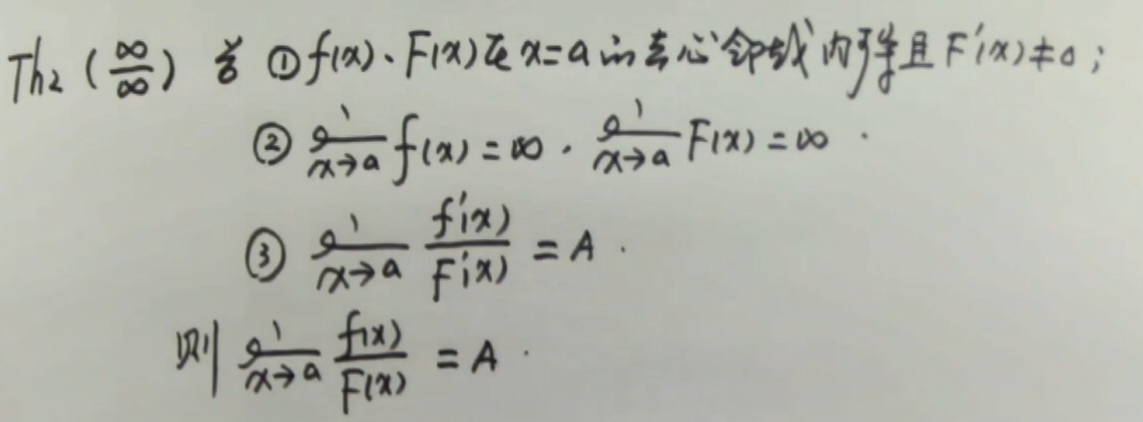 Th2 (∞/∞) 若 ①f(x)、F(x)在x=a的去心邻域内可导且F'(x)≠0;
② lim x→a f(x)=∞, lim x→a F(x)=∞.
③ lim x→a f'(x)/F'(x) = A.
则 lim x→a f(x)/F(x) = A.